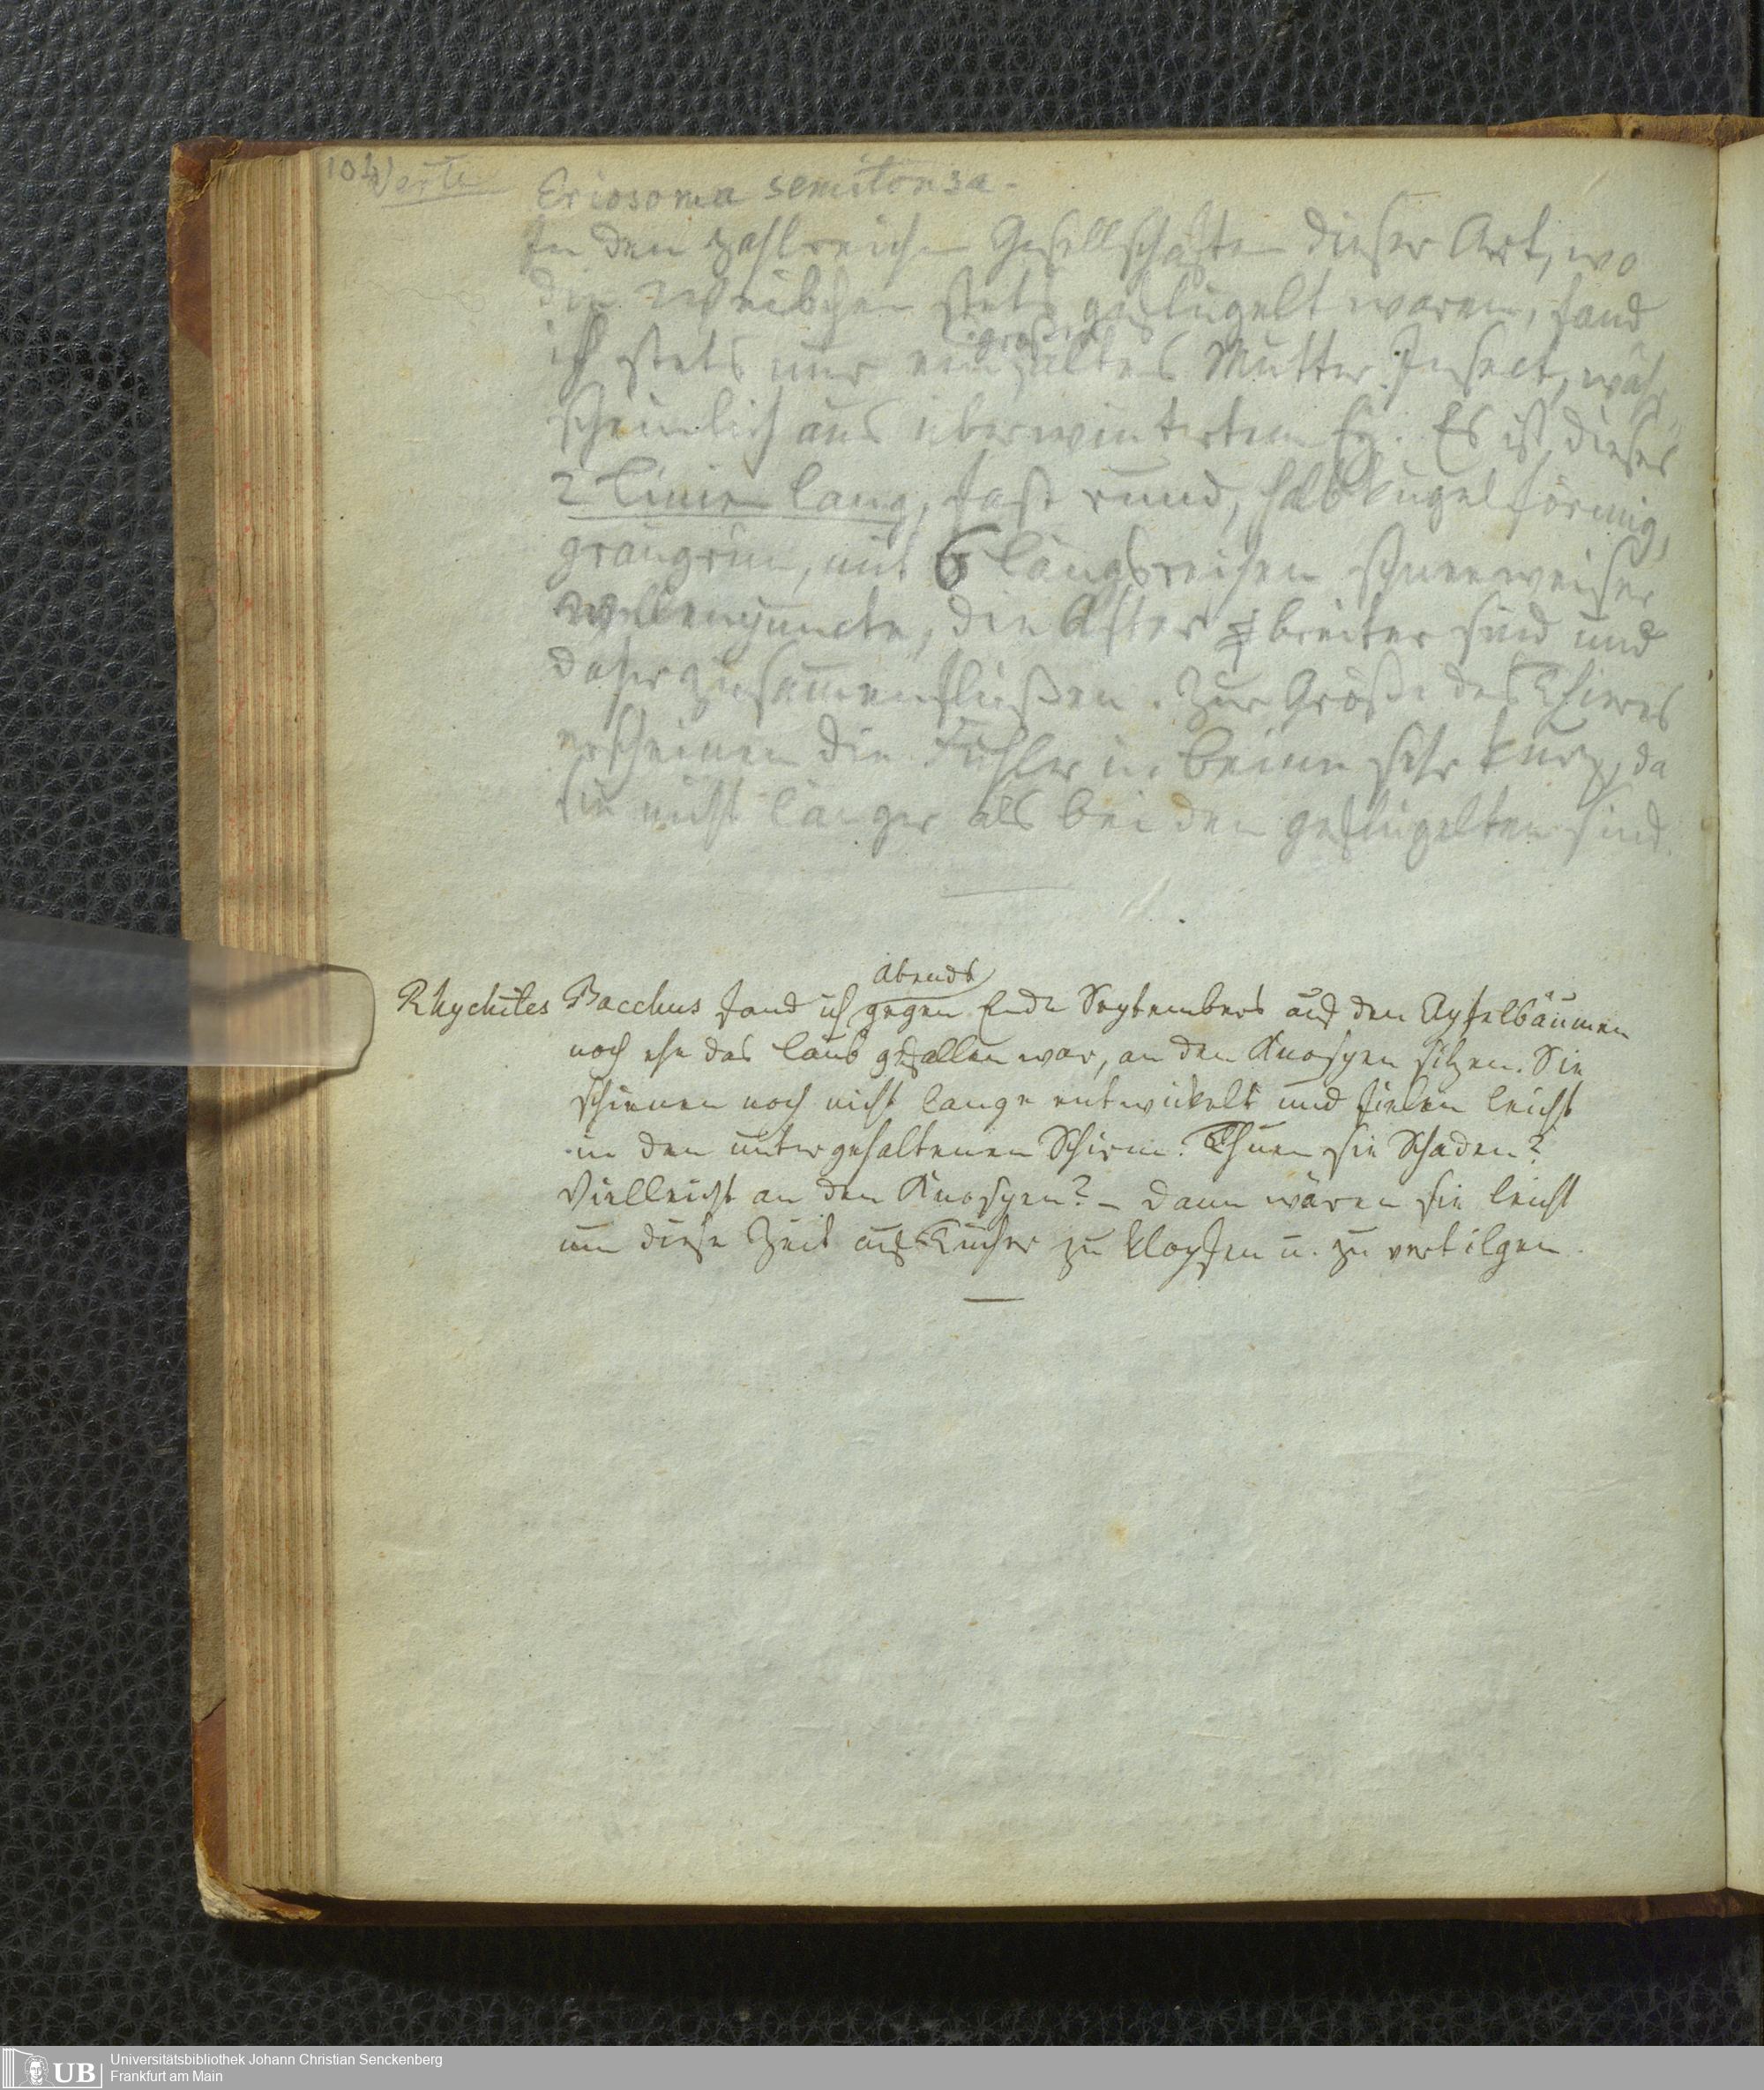 104
Verte
Eriosoma semitonsa.
In den zahlreichen Gesellschaften dieser Art, wo
die Weibchen stets geflügelt waren, fand
großes
ich stets nur ein altes Mutter Insect, wahr
scheinlich aus überwintertem Ey. Es ist dieses
2 Linien lang, fast rund, halbkugelförmig,
graugrün, mit 6 Längsreihen schneeweiser
Wollenpuncte, die After breiter sind und
daher zusam̅enflüßen. Zur Größe des Thieres
erscheinen die Fühler u. Beine sehr kurz, da
sie nicht länger als bei den geflügelten sind.
abends
Rhychites Bacchus fand ich gegen Ende Septembers auf den Apfelbäumen
noch ehe das Laub gefallen war, an den Knospen sitzen. Sie
schienen noch nicht lange entwickelt und fielen leicht
in den untergehaltenen Schirm. Thuen sie Schaden?
Vielleicht an den Knospen? – Dann wären sie leicht
um diese Zeit auf Tücher zu klopfen u. zu vertilgen.
UB
Universitätsbibliothek Johann Christian Senckenberg
Frankfurt am Main